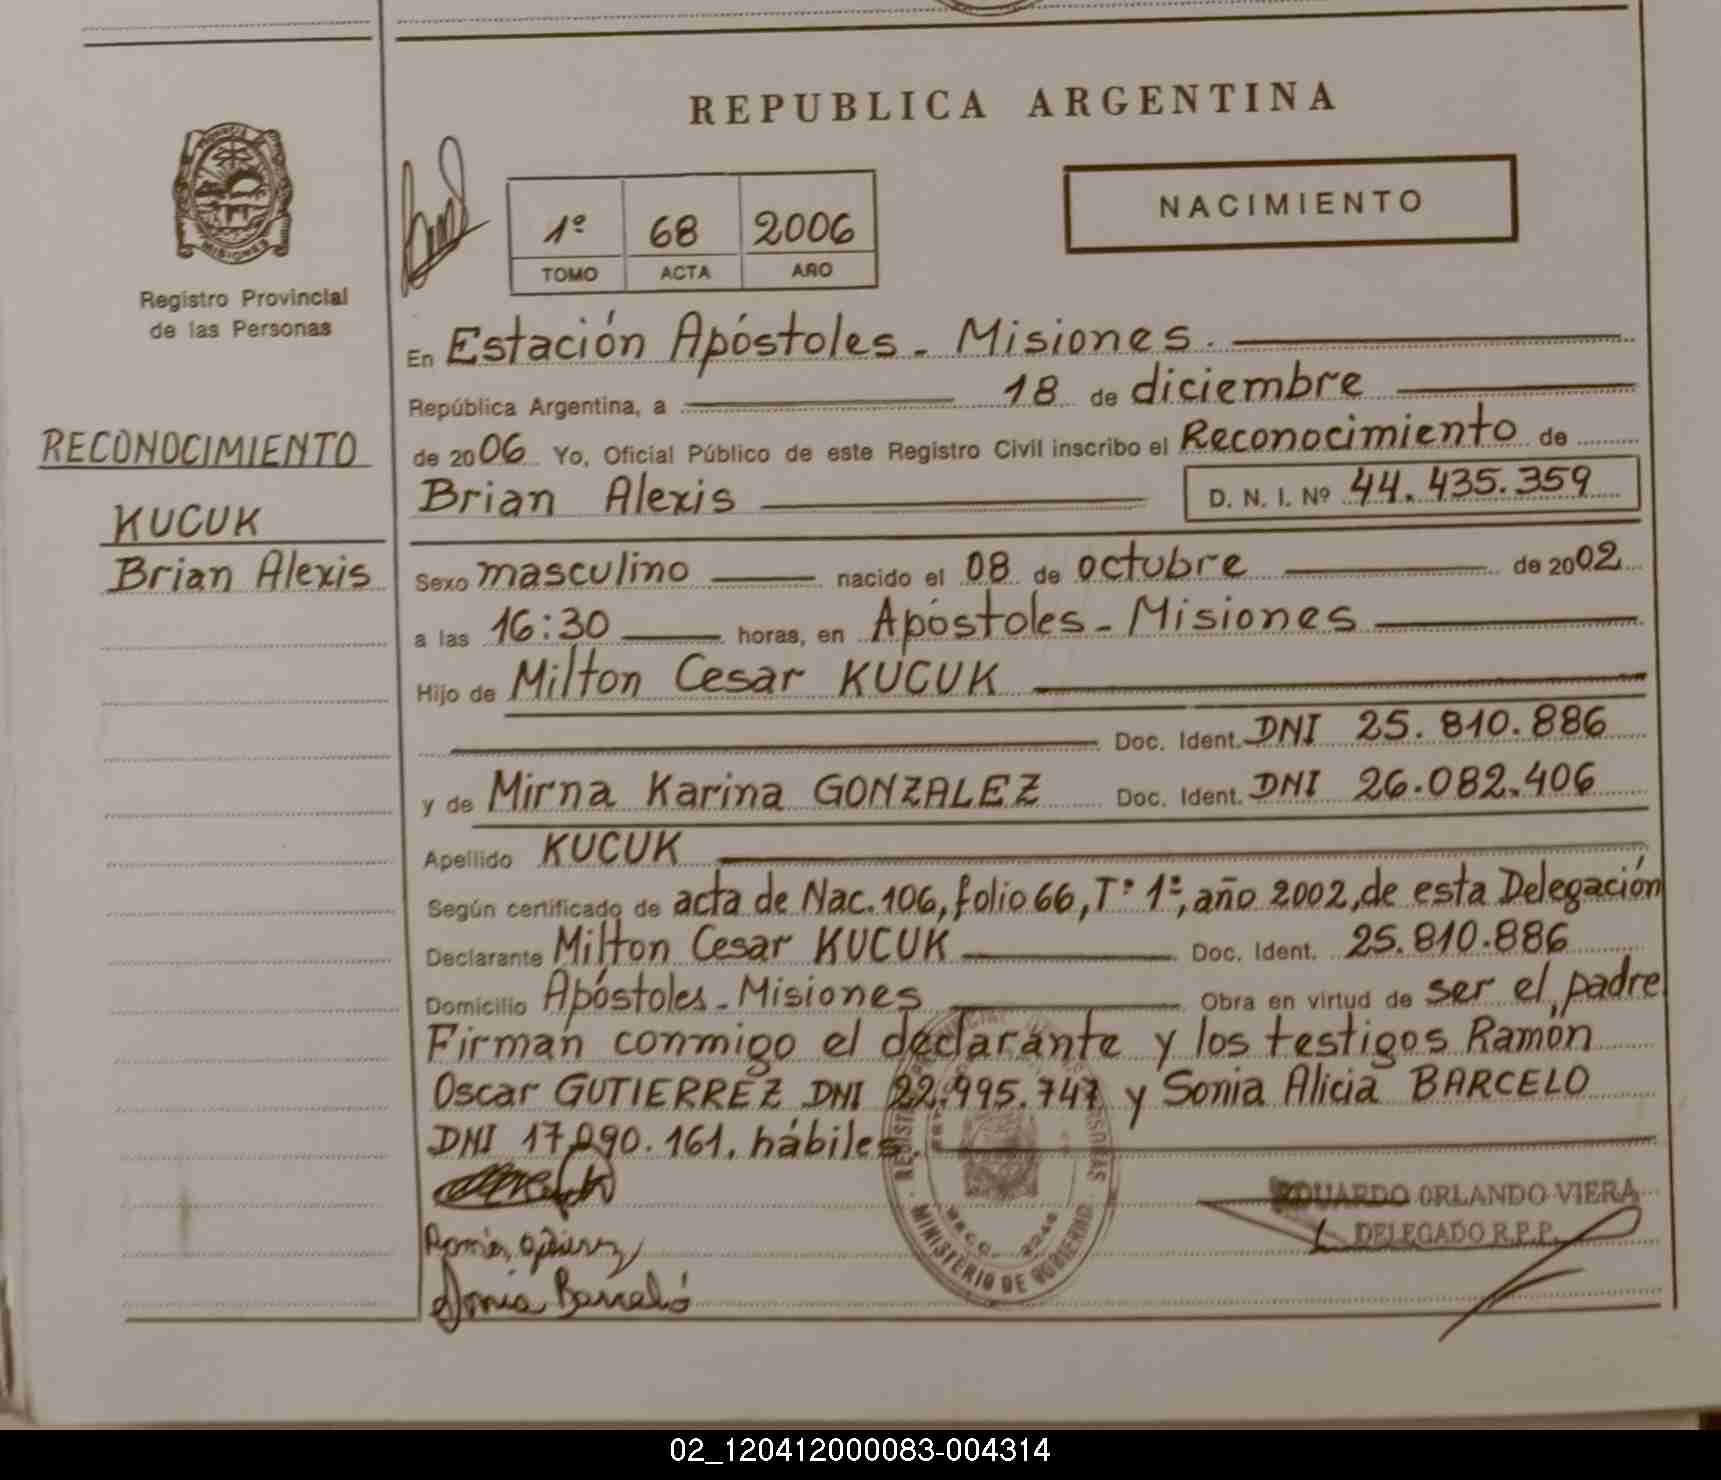 REPUBLICA ARGENTINA
NACIMIENTO
1º 68 2006
TOMO ACTA AÑO
PROVINCIA
MISIONES
Registro Provincial
de las Personas
RECONOCIMIENTO
KUCUK
Brian Alexis
En Estación Apóstoles - Misiones.
República Argentina, a 18 de diciembre
de 2006 Yo, Oficial Público de este Registro Civil inscribo el Reconocimiento de
Brian Alexis D. N. I. Nº 44.435.359
Sexo masculino nacido el 08 de octubre de 2002
a las 16:30 horas, en Apóstoles - Misiones
Hijo de Milton Cesar KUCUK
Doc. Ident. DNI 25.810.886
y de Mirna Karina GONZALEZ Doc. Ident. DNI 26.082.406
Apellido KUCUK
Según certificado de acta de Nac. 106, folio 66, Tº 1º, año 2002, de esta Delegación
Declarante Milton Cesar KUCUK Doc. Ident. 25.810.886
Domicilio Apóstoles - Misiones Obra en virtud de ser el padre
Firman conmigo el declarante y los testigos Ramón
Oscar GUTIERREZ DNI 22.995.747 y Sonia Alicia BARCELO
DNI 17.290.161. hábiles.
MINISTERIO DE GOBIERNO
EDUARDO ORLANDO VIERA
DELEGADO R.P.P.
Sonia Barceló
02_120412000083-004314